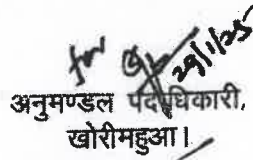 for
29/1/25
अनुमण्डल पदाधिकारी,
खोरीमहुआ।